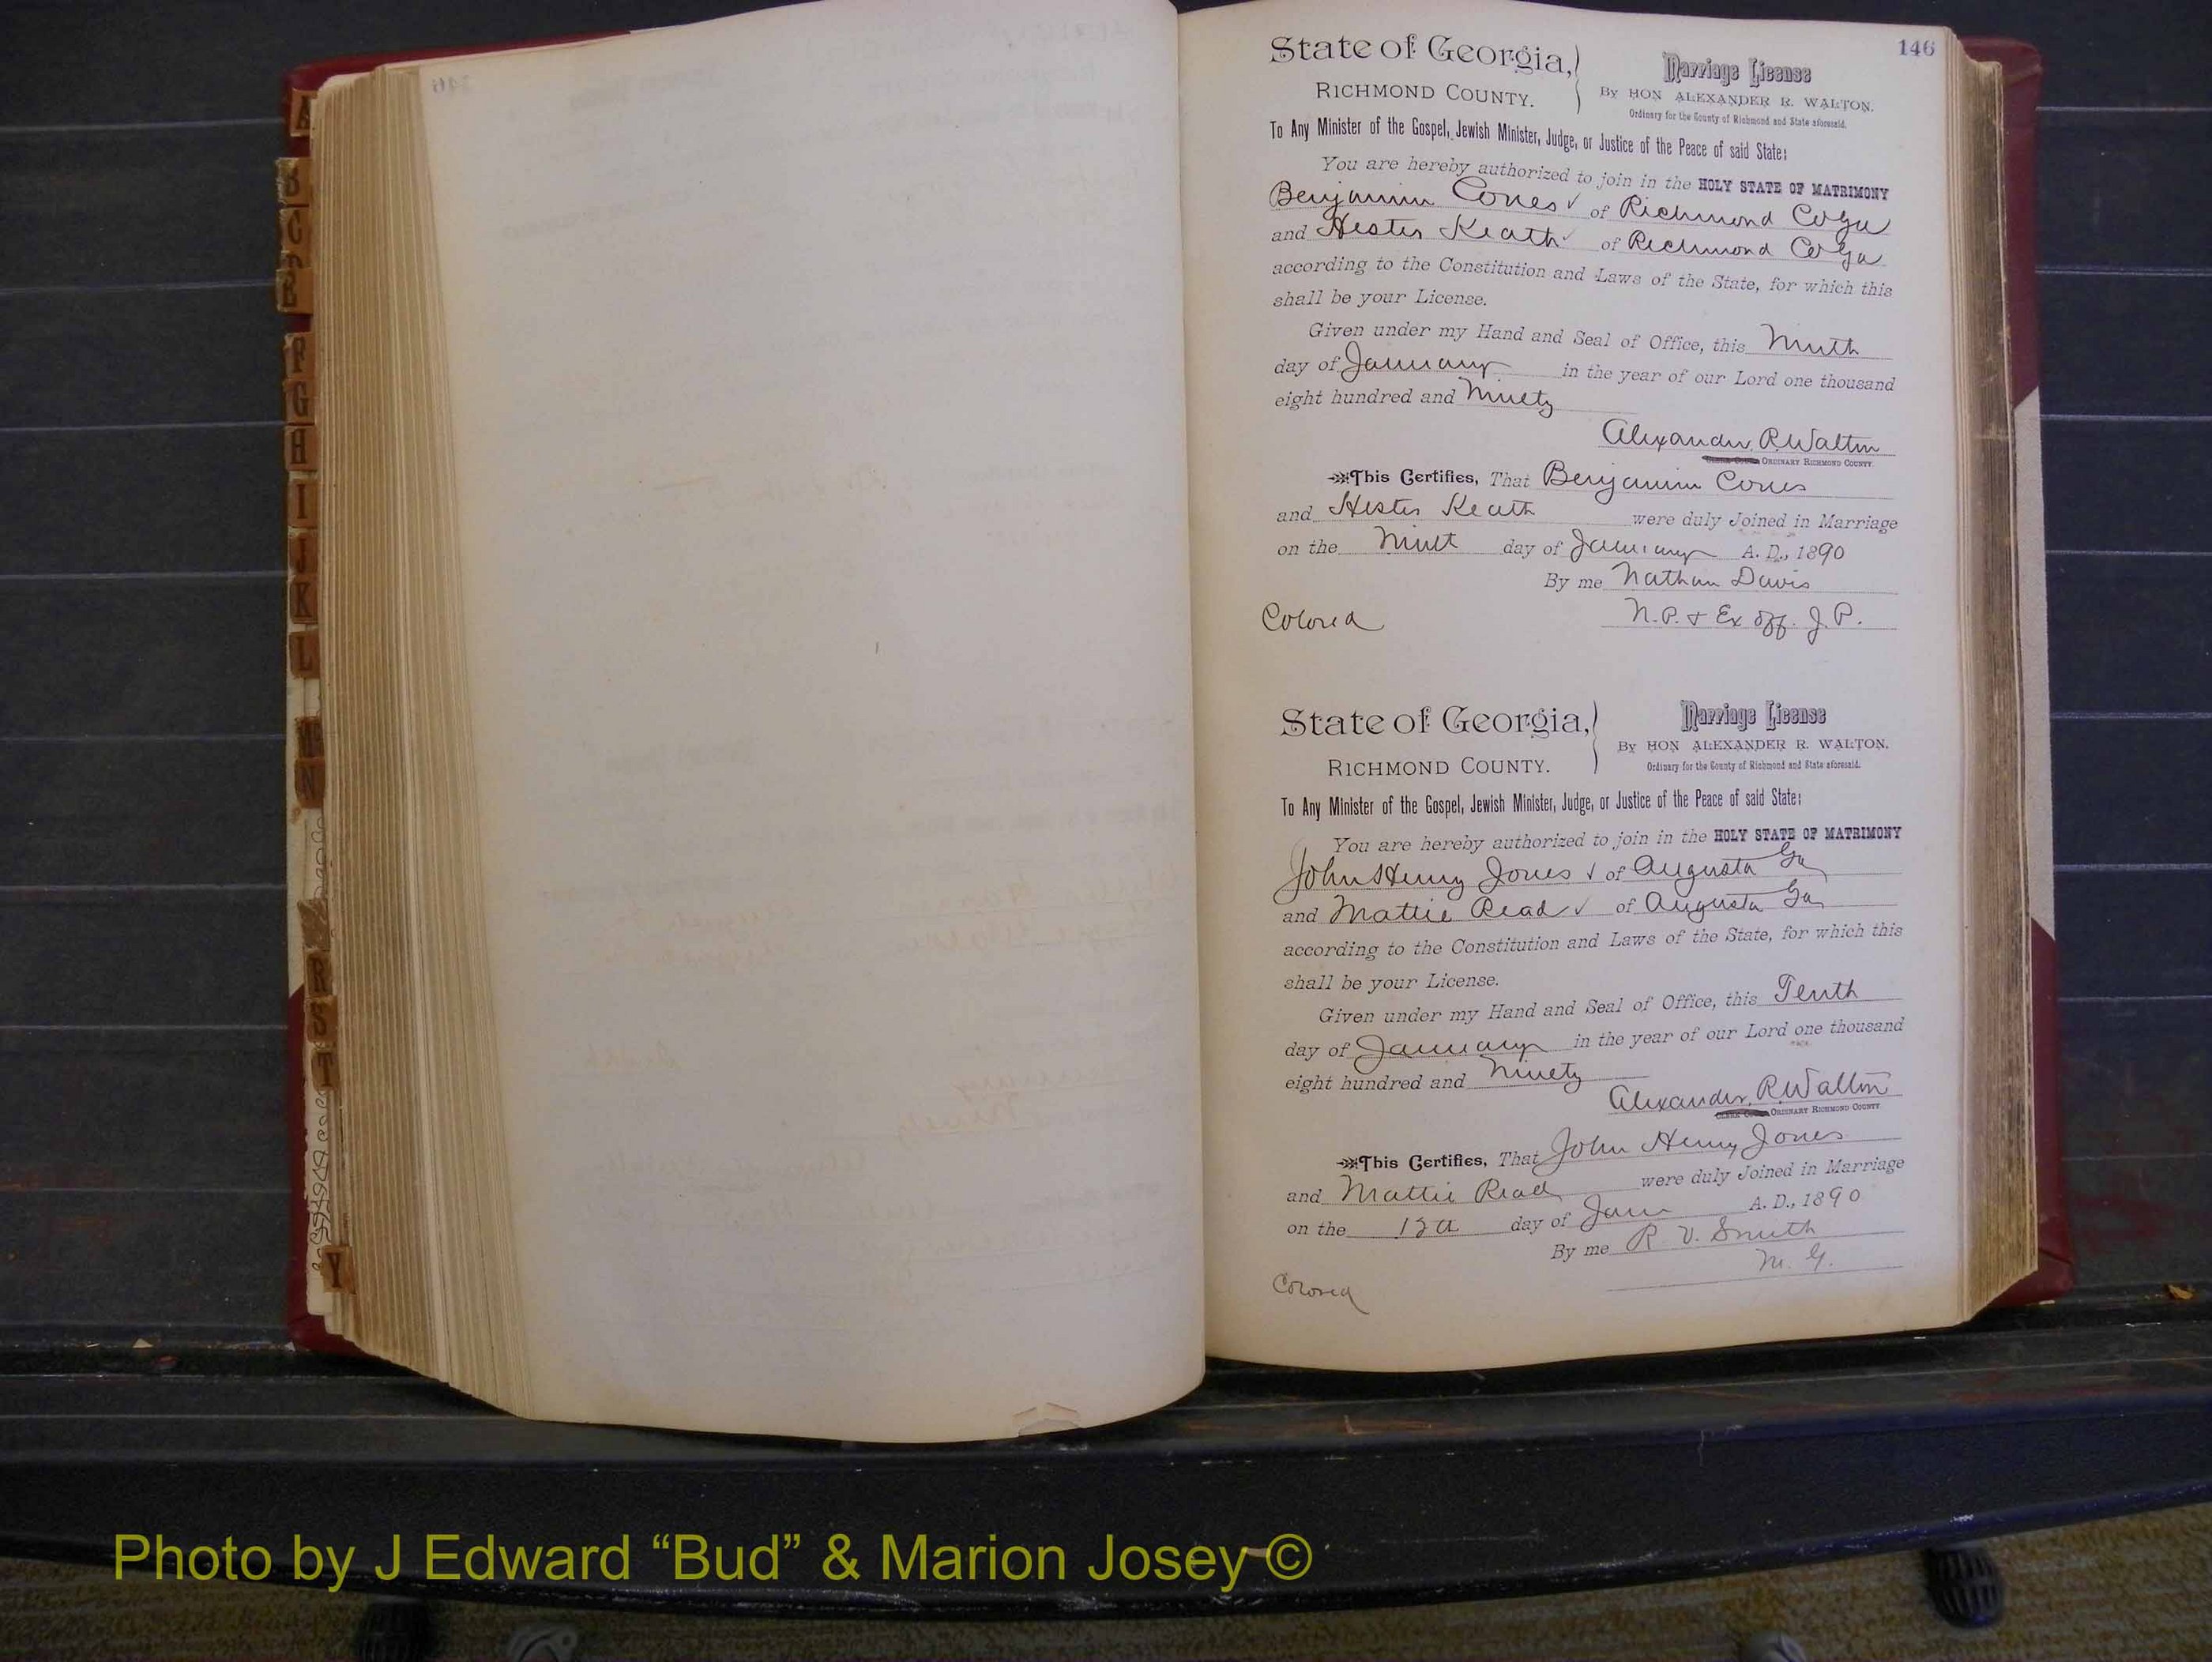 146
State of Georgia,
RICHMOND COUNTY.
Marriage License
By HON ALEXANDER R. WALTON.
Ordinary for the County of Richmond and State aforesaid.
To Any Minister of the Gospel, Jewish Minister, Judge, or Justice of the Peace of said State:
You are hereby authorized to join in the HOLY STATE OF MATRIMONY
Benjamin Cones of Richmond Co Ga
and Hester Keath of Richmond Co Ga
according to the Constitution and Laws of the State, for which this
shall be your License.
Given under my Hand and Seal of Office, this Ninth
day of January in the year of our Lord one thousand
eight hundred and Ninety
Alexander R. Walton
ORDINARY RICHMOND COUNTY.
This Certifies, That Benjamin Cones
and Hester Keath were duly Joined in Marriage
on the Nint day of January A. D., 1890
By me Nathan Davis
Colored N.P. & Ex off. J.P.
State of Georgia,
RICHMOND COUNTY.
Marriage License
By HON ALEXANDER R. WALTON.
Ordinary for the County of Richmond and State aforesaid.
To Any Minister of the Gospel, Jewish Minister, Judge, or Justice of the Peace of said State:
You are hereby authorized to join in the HOLY STATE OF MATRIMONY
John Henry Jones of Augusta Ga
and Mattie Read of Augusta Ga
according to the Constitution and Laws of the State, for which this
shall be your License.
Given under my Hand and Seal of Office, this Tenth
day of January in the year of our Lord one thousand
eight hundred and Ninety
Alexander R. Walton
ORDINARY RICHMOND COUNTY
This Certifies, That John Henry Jones
and Mattie Read were duly Joined in Marriage
on the day of Jan A. D., 1890
By me R V. Smith
M. G.
Colored
A
B
C
E
F
G
H
I
J
K
L
Mc
N
R
S
T
Y
Photo by J Edward “Bud” & Marion Josey ©